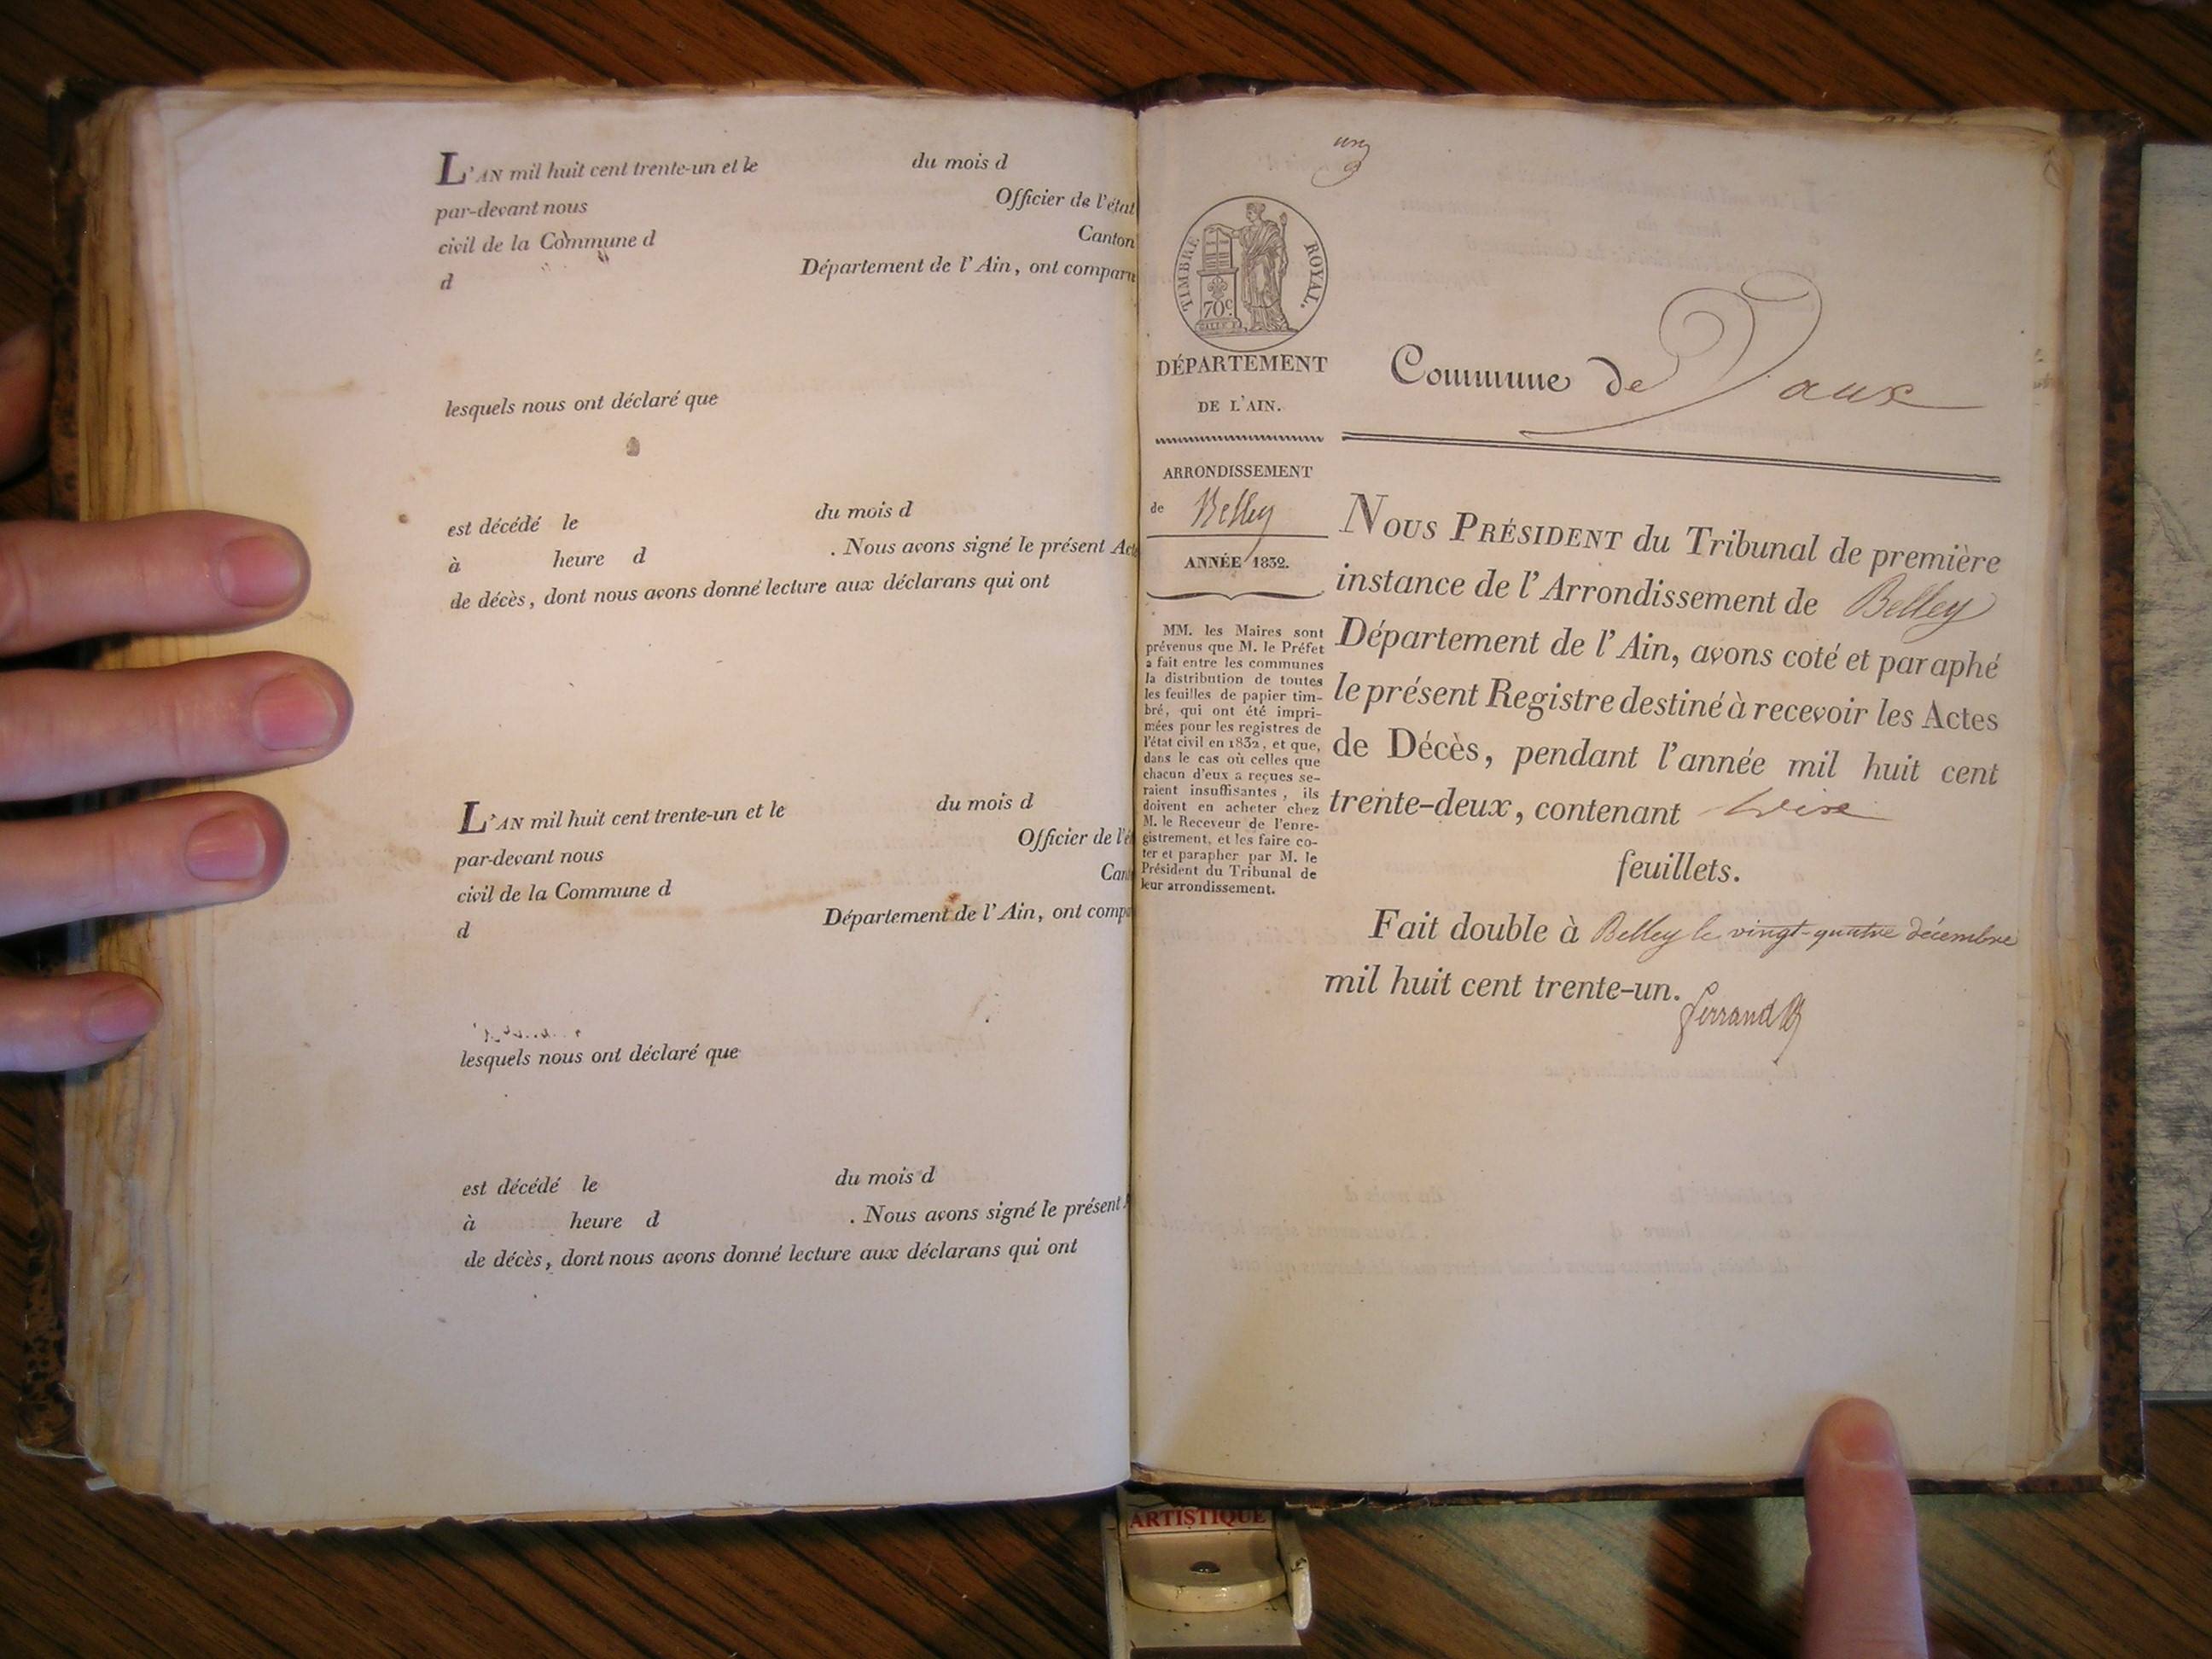 L'AN mil huit cent trente-un et le du mois d
par-devant nous Officier de l'état
civil de la Commune d Canton
d Département de l'Ain, ont comparu
lesquels nous ont déclaré que
est décédé le du mois d
à heure d . Nous avons signé le présent Acte
de décès, dont nous avons donné lecture aux déclarans qui ont
L'AN mil huit cent trente-un et le du mois d
par-devant nous Officier de l'é
civil de la Commune d Can
d Département de l'Ain, ont compa
lesquels nous ont déclaré que
est décédé le du mois d
à heure d . Nous avons signé le présent A
de décès, dont nous avons donné lecture aux déclarans qui ont
un
TIMBRE ROYAL.
70c.
DÉPARTEMENT
DE L'AIN.
ARRONDISSEMENT
de Belley
ANNÉE 1832.
MM. les Maires sont
prévenus que M. le Préfet
a fait entre les communes
la distribution de toutes
les feuilles de papier tim-
bré, qui ont été impri-
mées pour les registres de
l'état civil en 1832, et que,
dans le cas où celles que
chacun d'eux a reçues se-
raient insuffisantes, ils
doivent en acheter chez
M. le Receveur de l'enre-
gistrement, et les faire co-
ter et parapher par M. le
Président du Tribunal de
leur arrondissement.
Commune de Vaux
NOUS PRÉSIDENT du Tribunal de première
instance de l'Arrondissement de Belley
Département de l'Ain, avons coté et paraphé
le présent Registre destiné à recevoir les Actes
de Décès, pendant l'année mil huit cent
trente-deux, contenant
feuillets.
Fait double à Belley le vingt-quatre décembre
mil huit cent trente-un.
Ferrand
ARTISTIQUE